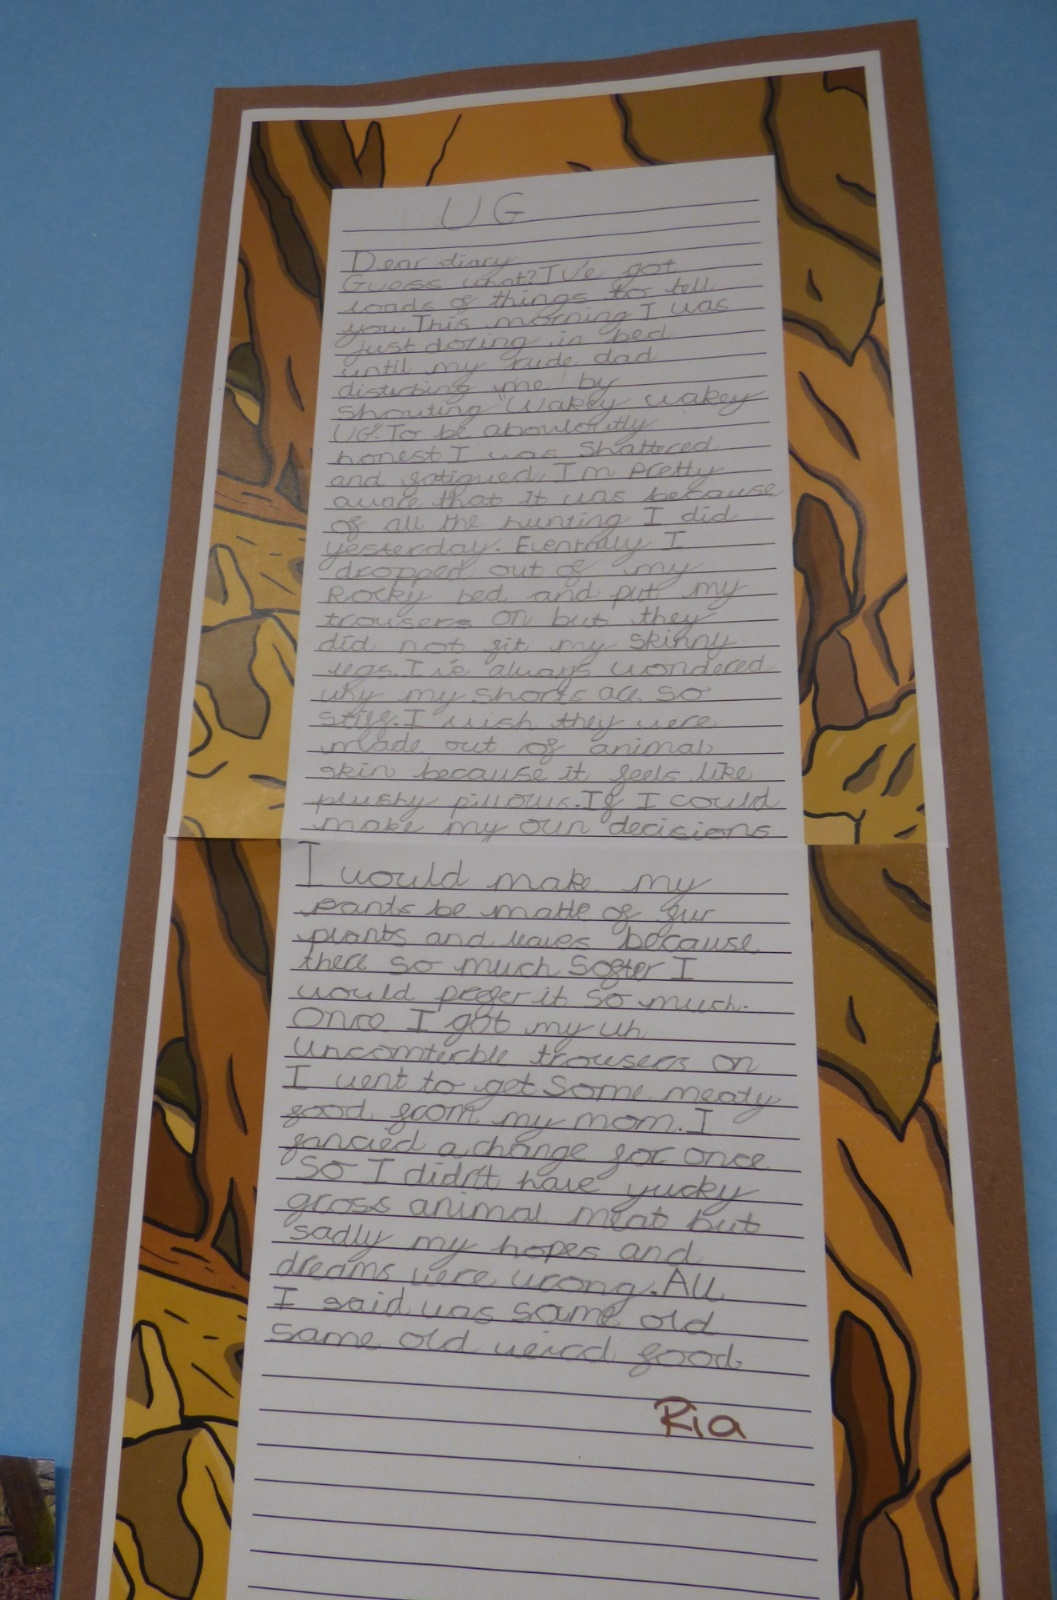 UG
Dear diary
Guess what? I've got
loads of things to tell
you. This morning I was
just dozing in bed
until my rude dad
disturbing me by
shouting "Wakey wakey
UG". To be abouloutly
honest I was Shattered
and fatigued, I'm pretty
aware that it was because
of all the hunting I did
yesterday. Eventually I
dropped out of my
Rocky bed and put my
trousers on but they
did not fit my skinny
legs. I've always wondered
why my shorts are so
stiff. I wish they were
made out of animal
skin because it feels like
plushy pillows. If I could
make my own decisions
I would make my
pants be made of fur
plants and leaves because
there so much Softer I
would prefer it so much.
Once I got my uh
uncomterble trousers on
I went to get Some meaty
food from my mom. I
fancied a change for once
So I didn't have yucky
gross animal meat but
sadly my hopes and
dreams were wrong. All
I said was same old
same old weird food.
Ria